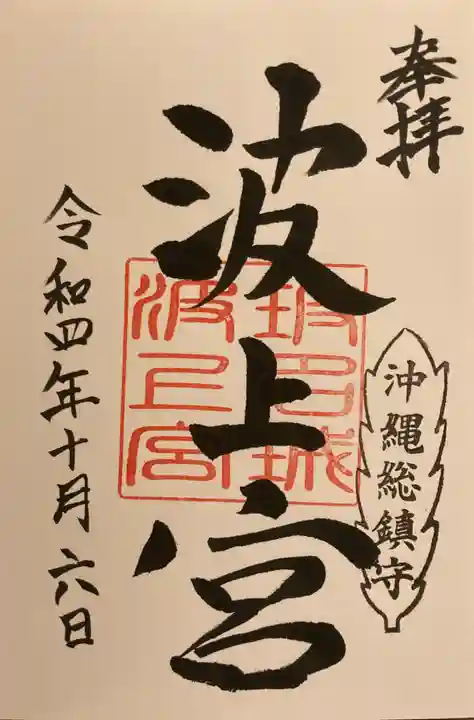 奉拝
沖縄総鎮守
波上宮
令和四年十月六日
波上宮